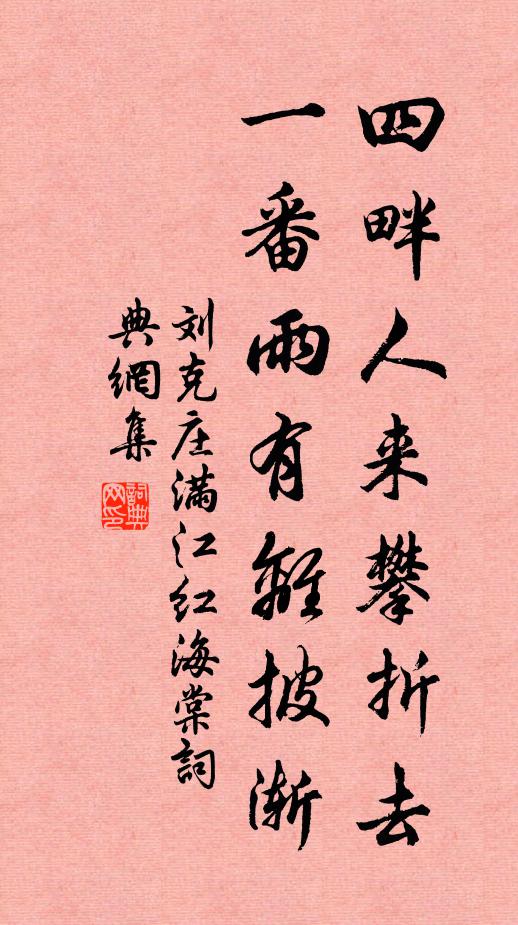 四畔人来攀折去
一番雨有離披渐
刘克庄满江红海棠詞
典網集
詞典網印